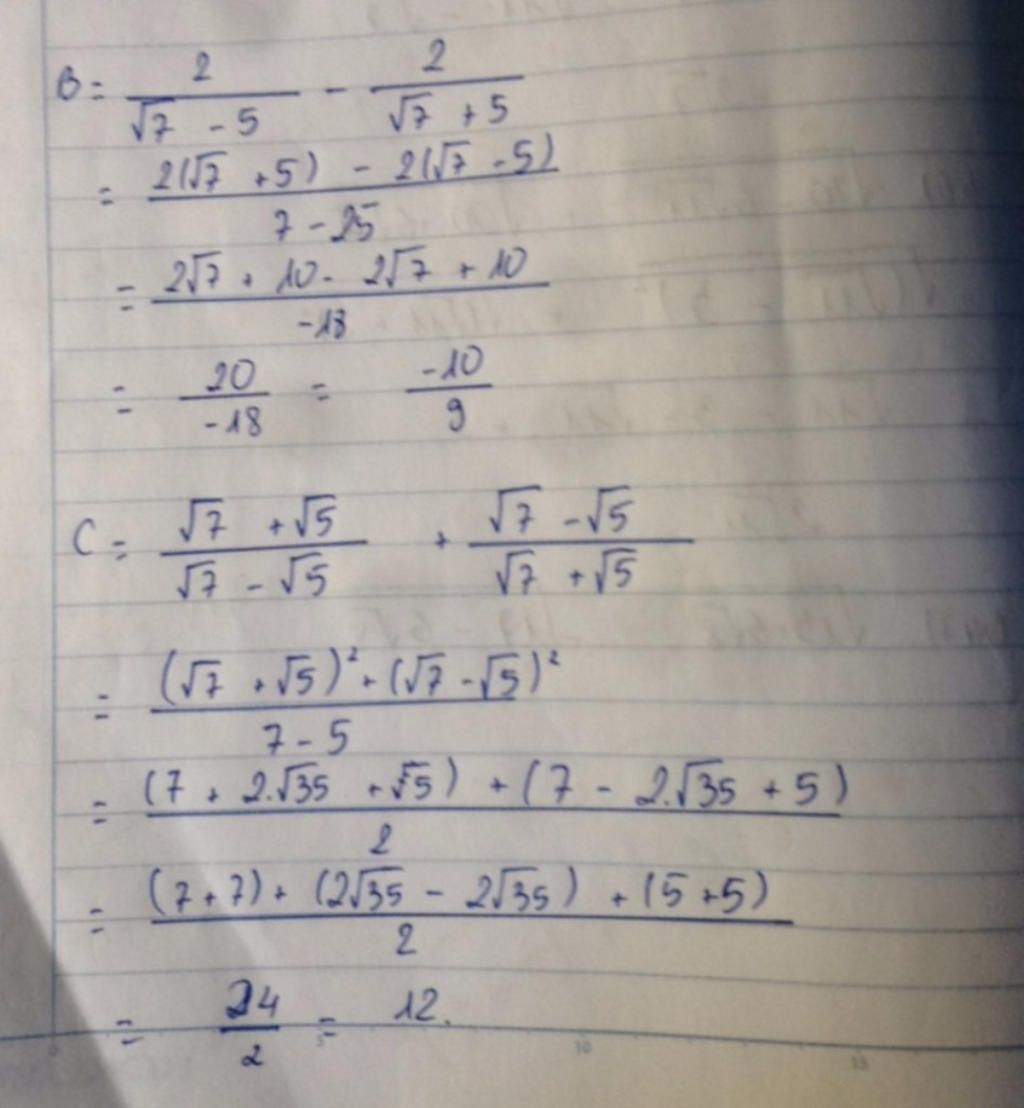 B = \frac{2}{\sqrt{7} - 5} - \frac{2}{\sqrt{7} + 5}
= \frac{2(\sqrt{7} + 5) - 2(\sqrt{7} - 5)}{7 - 25}
= \frac{2\sqrt{7} + 10 - 2\sqrt{7} + 10}{-18}
= \frac{20}{-18} = \frac{-10}{9}
C = \frac{\sqrt{7} + \sqrt{5}}{\sqrt{7} - \sqrt{5}} + \frac{\sqrt{7} - \sqrt{5}}{\sqrt{7} + \sqrt{5}}
= \frac{(\sqrt{7} + \sqrt{5})^2 + (\sqrt{7} - \sqrt{5})^2}{7 - 5}
= \frac{(7 + 2.\sqrt{35} + \sqrt{5}) + (7 - 2.\sqrt{35} + 5)}{2}
= \frac{(7 + 7) + (2\sqrt{35} - 2\sqrt{35}) + (5 + 5)}{2}
= \frac{24}{2} = 12.
0 5 10 15